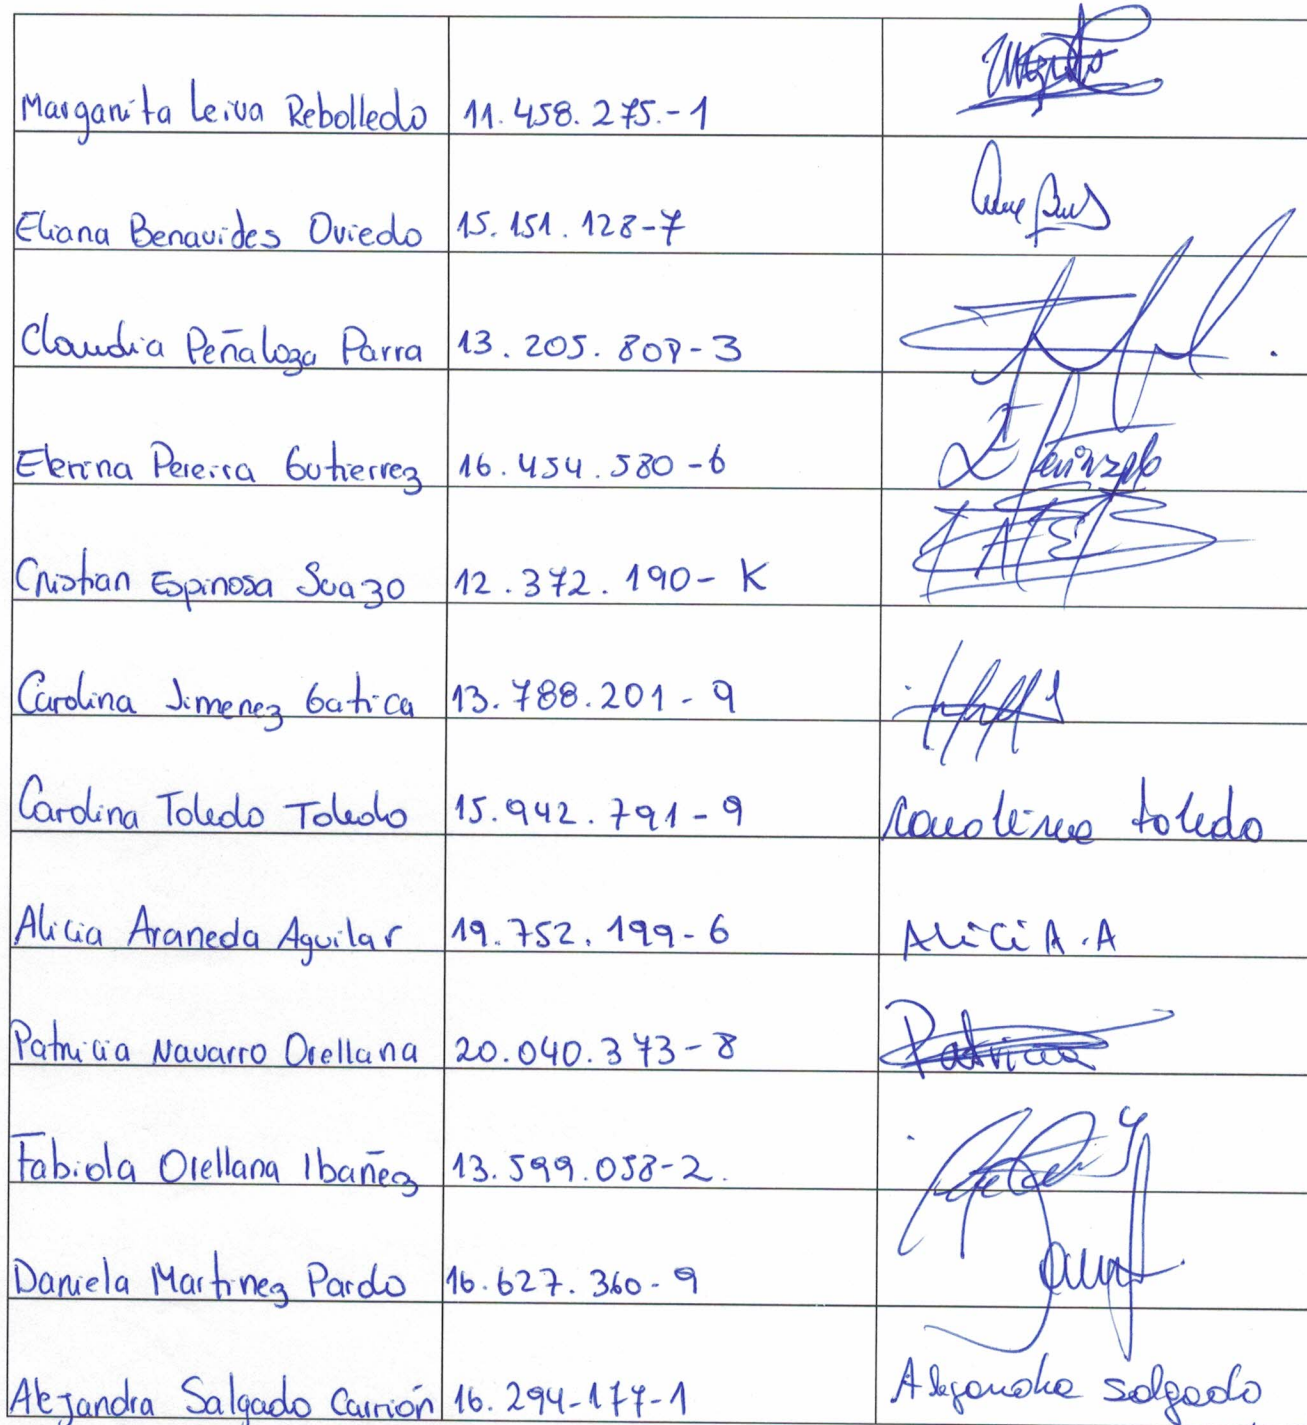 Margarita Leiva Rebolledo 11.458.275.-1
Eliana Benavides Oviedo 15.151.128-7
Claudia Peñaloza Parra 13.205.808-3
Pereira Gutierrez 16.454.580-6
Cristian Espinosa Suazo 12.372.190-K
Carolina Jimenez Gatica 13.788.201-9
Carolina Toledo Toledo 15.942.791-9 Carolina toledo
Alicia Araneda Aguilar 19.752.199-6 AliCiA.A
Patricia Navarro Orellana 20.040.373-8 Patricia
Fabiola Orellana Ibañez 13.599.058-2.
Daniela Martinez Pardo 16.627.360-9
Alejandra Salgado Carrión 16.294-177-1 Alejandra Salgado